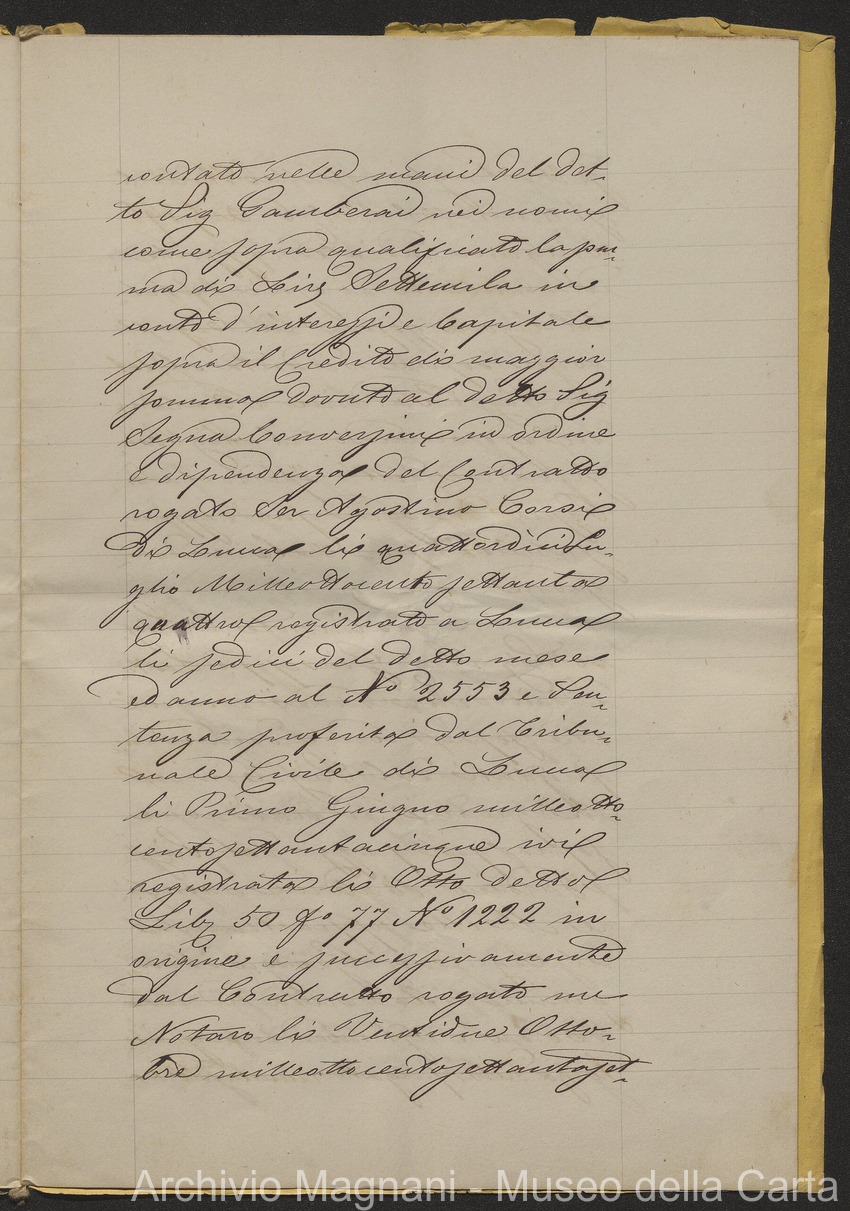 contato nelle mani del det-
to Sig Gamberai nei nomi
come sopra qualificato la som-
ma di Lire Settemila in
conto d'interessi e Capitale
sopra il Credito di maggior
somma dovuto al detto Sig
Segna Conversini in ordine
e dipendenza del Contratto
rogato Ser Agostino Corsi
di Lucca li quattordici Lu-
glio Milleottocento settanta
quattro registrato a Lucca
li sedici del detto mese
ed anno al No 2553 e Sen-
tenza proferita dal Tribu-
nale Civile di Lucca
li Primo Giugno milleotto-
centosettantacinque ivi
registrata li Otto detto
Lib 50 fo 77 No 1222 in
origine e successivamente
dal Contratto rogato me
Notaro li Ventidue Otto-
bre milleottocentosettantaset-
Archivio Magnani - Museo della Carta